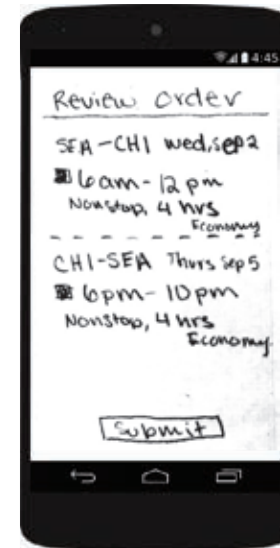 4:45
Review Order
SEA-CHI Wed, Sep 2
6am-12pm
Nonstop, 4 hrs
Economy
CHI-SEA Thurs Sep 5
6pm-10pm
Nonstop, 4 hrs
Economy
Submit